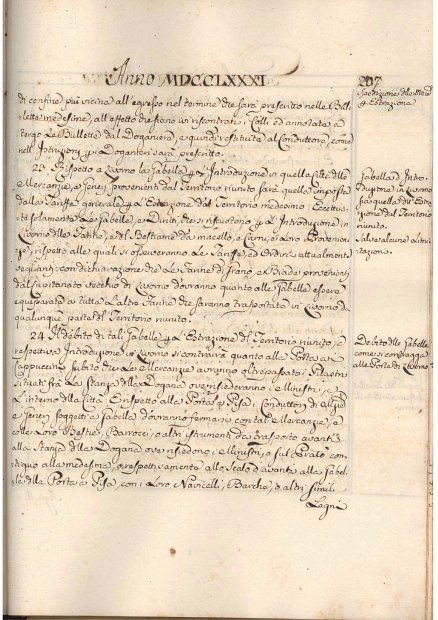 Anno MDCCLXXXI
207
di confine più vicina all'egresso nel termine che sarà prescritto nelle Bul-
lette medesime, all'effetto che siano ivi riscontrati i Colli, ed annotate a
tergo le Bullette dal Doganiere, e quindi restituite al Conduttore come
nell'Istruzioni Doganieri sarà prescritto.
23. Rispetto a Livorno la Gabella d'Introduzione in quella Città delle
Mercanzie, e Generi provenienti dal Territorio riunito sarà quella imposta
dalla Tariffa generale Estrazione dal Territorio medesimo. Eccettua-
te solamente Le Gabelle, e Diritti che si riscuotono Introduzione in
Livorno delle Grascie, e di Bestiame da macello, e Carni, e Loro Provenien-
ze, rispetto alle quali si osserveranno Le Tariffe, ed Ordini attualmente
veglianti con dichiarazione che Le Farine di Grano, e Biade provenienti
dal Capitanato vecchio di Livorno dovranno quanto alle Gabelle essere
equiparate a tutte L'altre Farine che saranno trasportate in Livorno da
qualunque parte del Territorio riunito.
24. Il debito di tali Gabelle Estrazione del Territorio riunito, e
respettiva Introduzione in Livorno si contrarrà quanto alla Porta a
Cappuccini subito che Le Mercanzie avranno oltrepassato i Pilastri
situati fra La Stanza della Dogana ove risiederanno i Ministri, e
L'interno della Città. E rispetto alla Porta a Pisa, i Conduttori di
e Generi soggetti a Gabella dovranno fermarsi con tali Mercanzie, e
colle Loro Bestie, Barrocci, o altri istrumenti da trasporto avanti
alla Stanza della Dogana ove risiedono i Ministri, o sul Piazzale con-
tiguo alla medesima, o respettivamente allo Scalo davanti alla Gabel-
la della Porta a Pisa, con i Loro Navicelli, Barche, o altri simili
Legni
Estrazione
Gabella d'Intro-
duzione in Livorno
sia quella dell'Estra-
zione dal Territorio
riunito.
Salve alcune
Debito delle Gabelle
come si contragga
alle Porte di Livorno